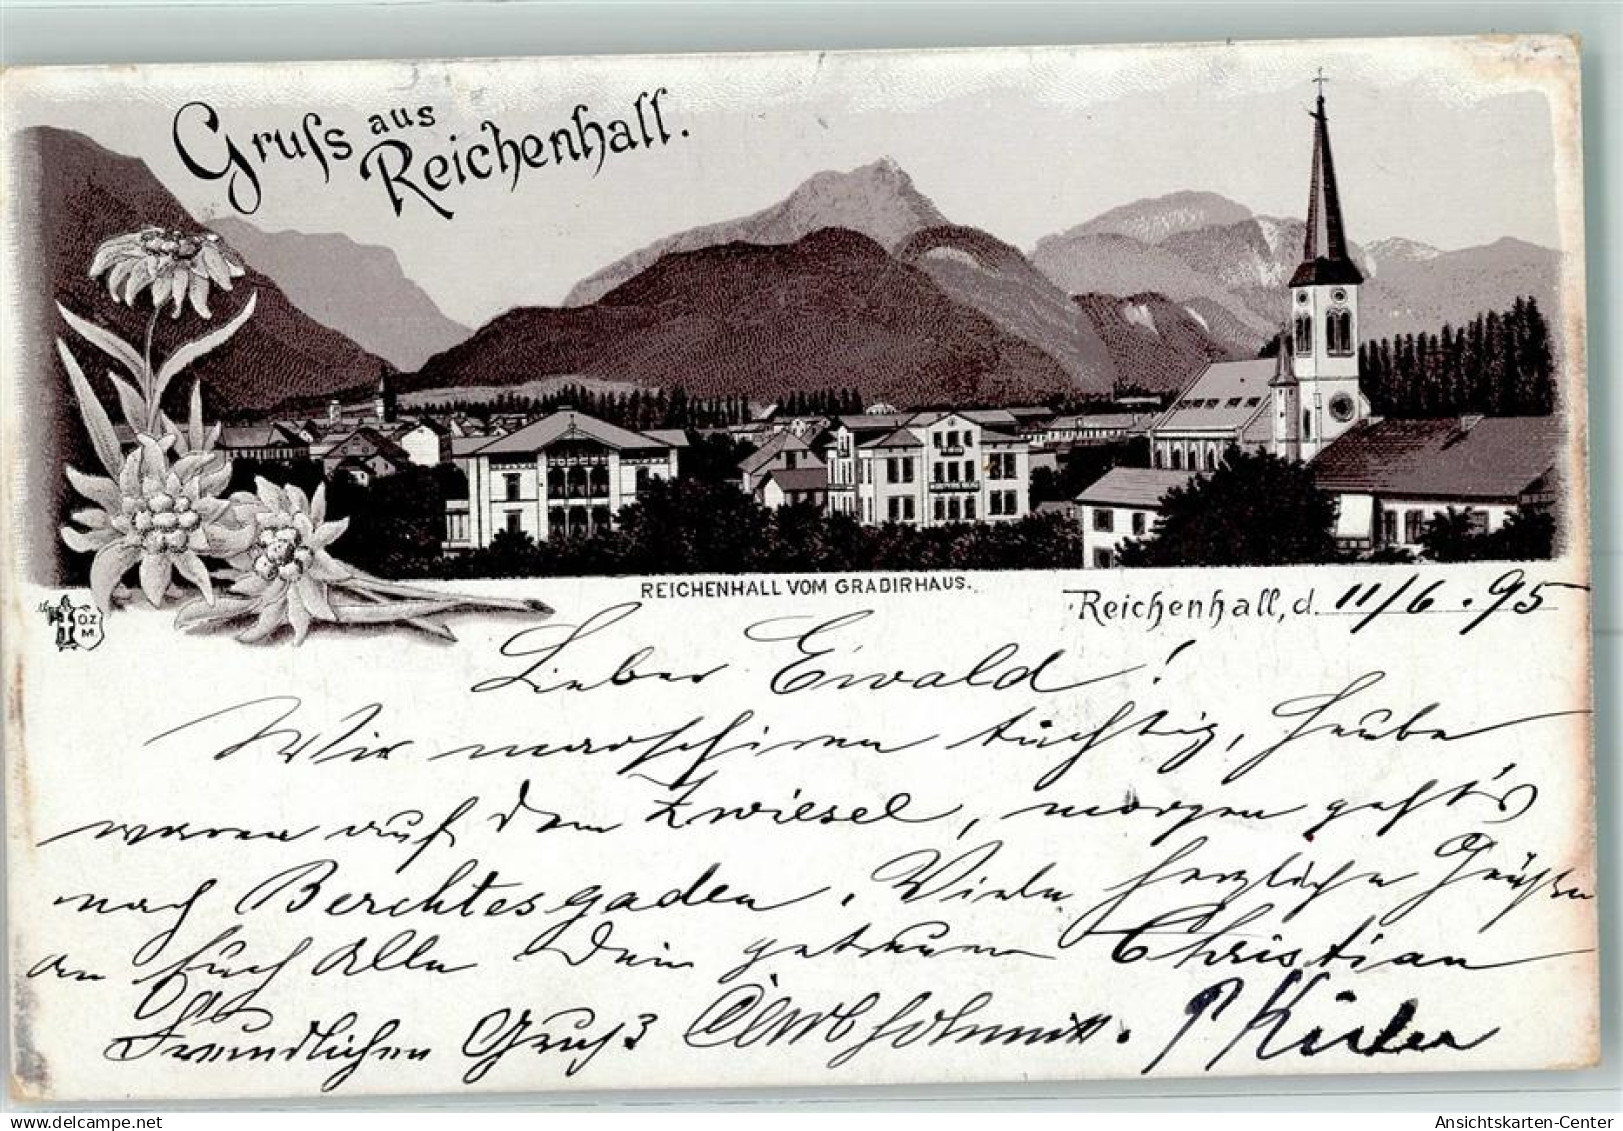 Gruſs aus
Reichenhall.
REICHENHALL VOM GRADIRHAUS.
Reichenhall, d. 11/6. 95
Ö.Z.
M.
Lieber Ewald!
Wir marschiren tüchtig, heute
waren auf dem Zwiesel, morgen geht's
nach Berchtesgaden. Viele herzliche Grüße
an Euch Alle Dein getreuer Christian
Freundlichen Gruß
Ansichtskarten-Center